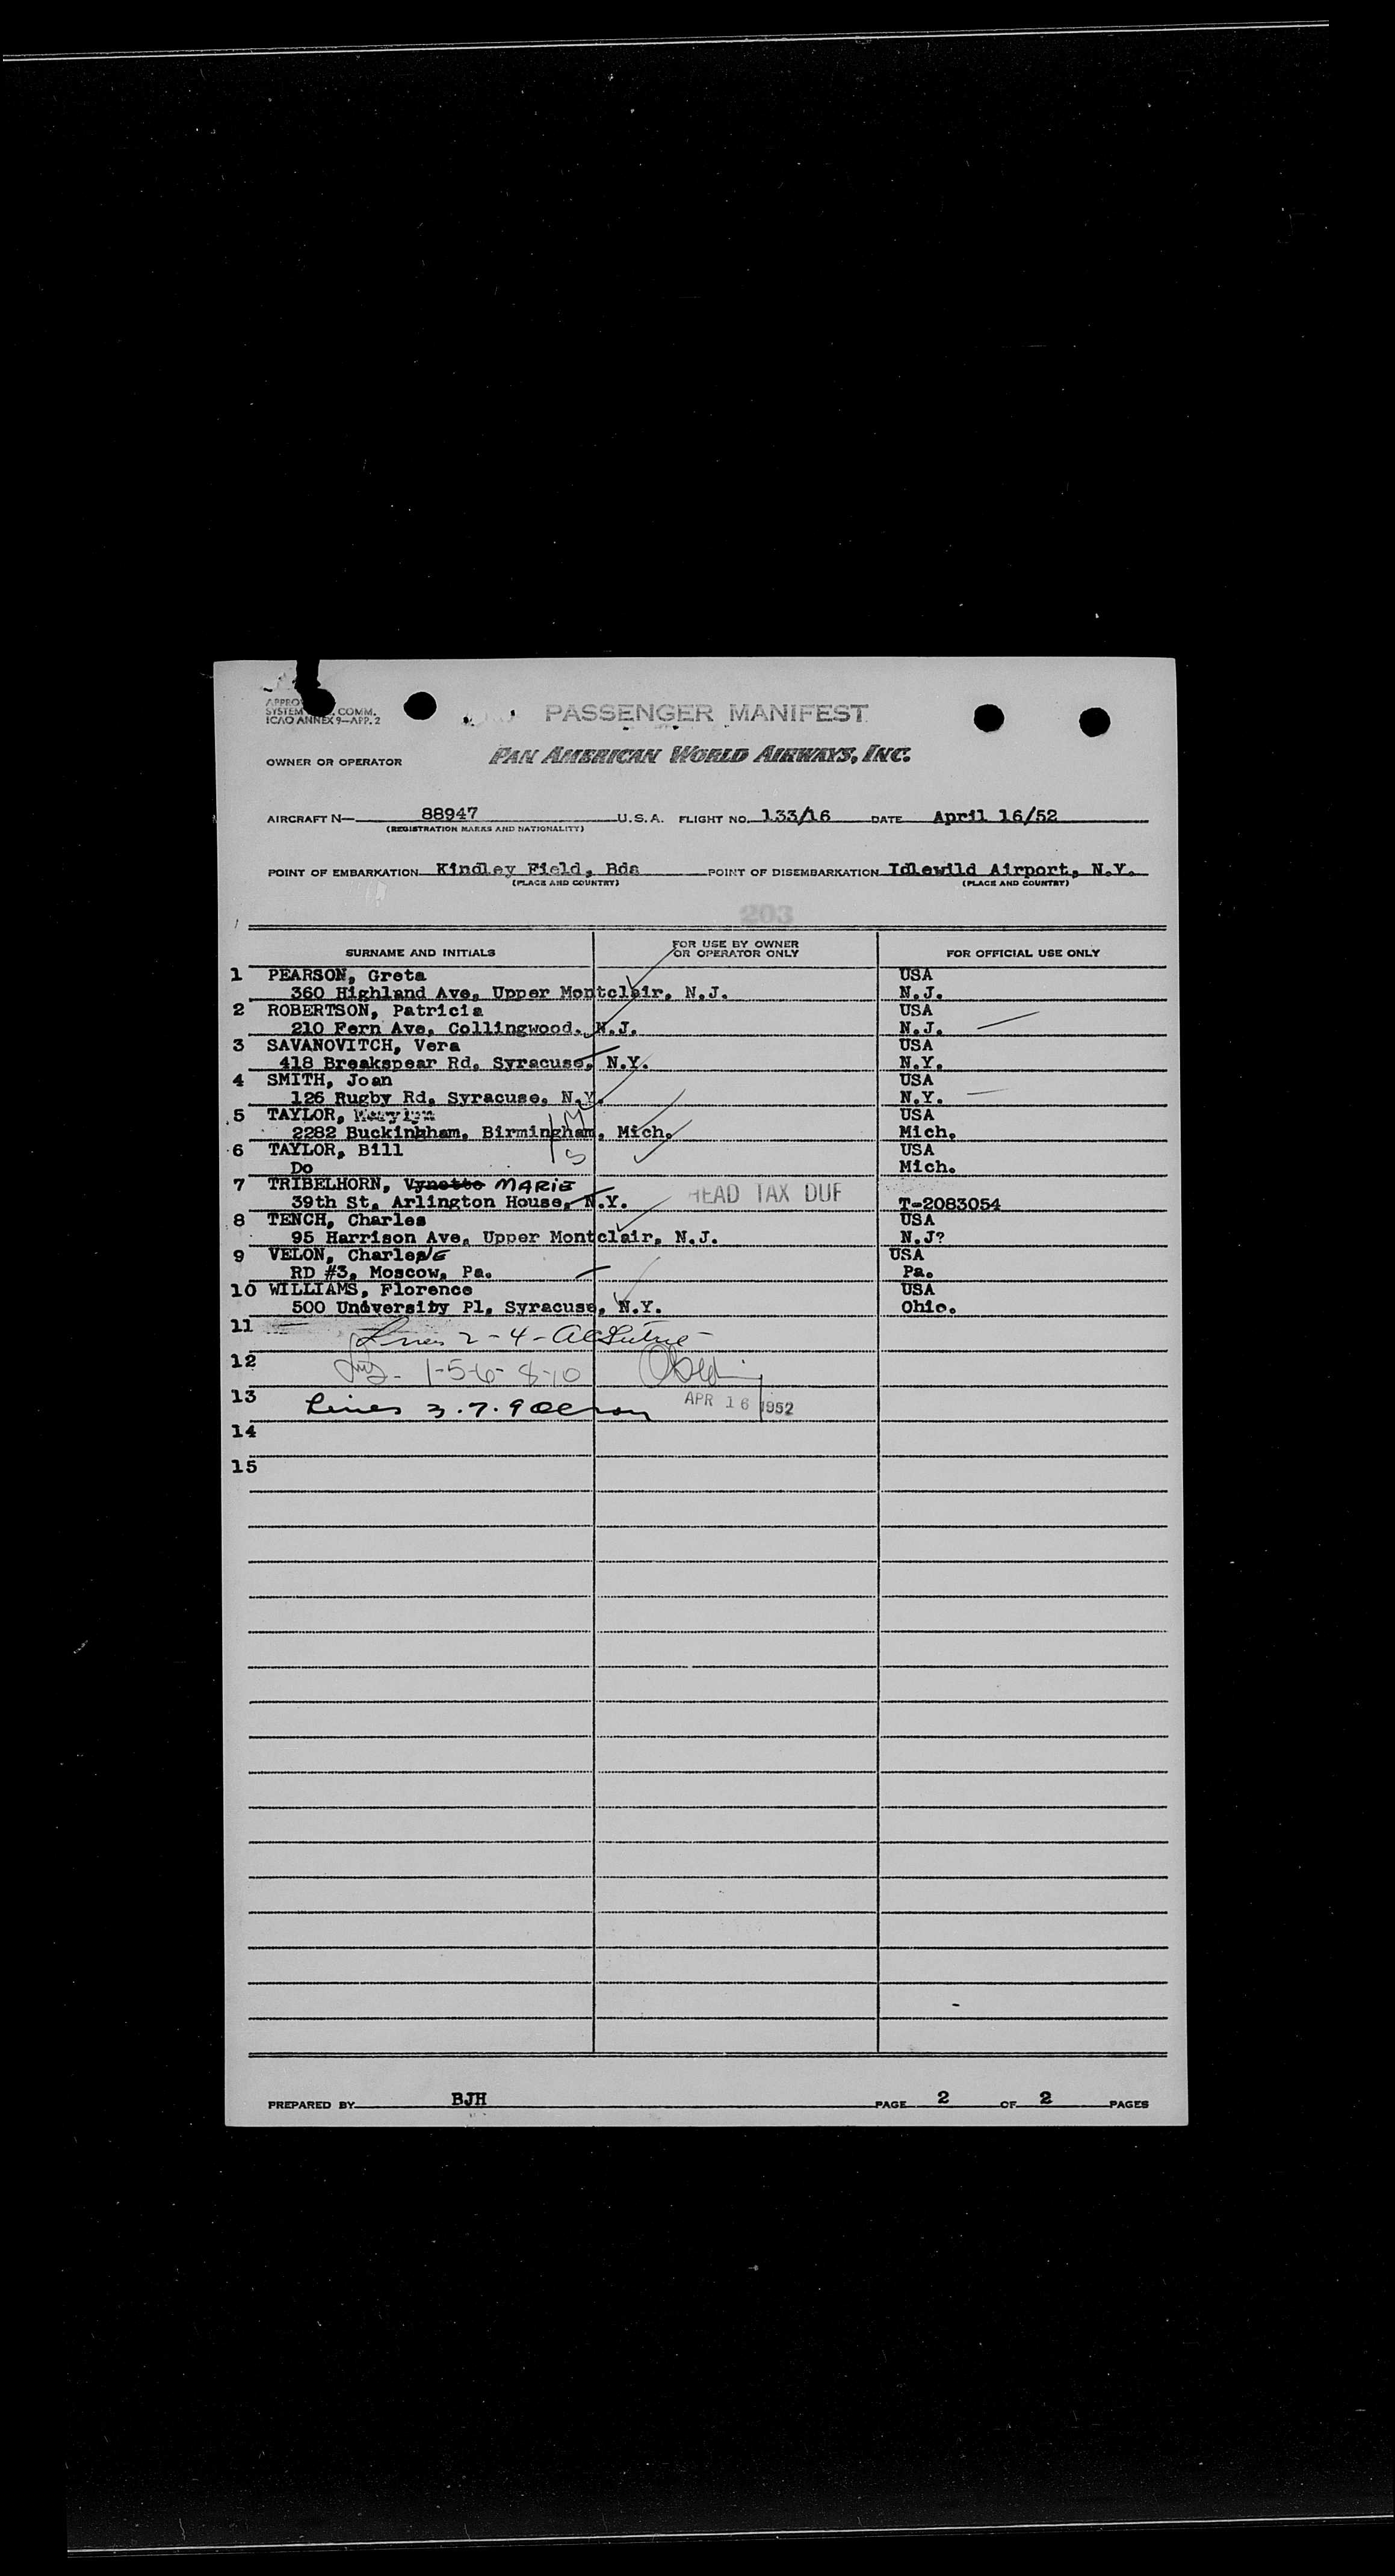 SYSTEM COMM.
ICAO ANNEX 9—APP. 2
PASSENGER MANIFEST
OWNER OR OPERATOR
PAN AMERICAN WORLD AIRWAYS, INC.
AIRCRAFT N— 88947 U.S.A. FLIGHT NO. 133/16 DATE April 16/52
(REGISTRATION MARKS AND NATIONALITY)
POINT OF EMBARKATION Kindley Field, Bda POINT OF DISEMBARKATION Idlewild Airport, N.Y.
(PLACE AND COUNTRY) (PLACE AND COUNTRY)
203
SURNAME AND INITIALS FOR USE BY OWNER OR OPERATOR ONLY FOR OFFICIAL USE ONLY
1 PEARSON, Greta USA
360 Highland Ave, Upper Montclair, N.J. N.J.
2 ROBERTSON, Patricia USA
210 Fern Ave, Collingwood, N.J. N.J.
3 SAVANOVITCH, Vera USA
418 Breakspear Rd, Syracuse, N.Y. N.Y.
4 SMITH, Joan USA
126 Rugby Rd, Syracuse, N.Y. N.Y.
5 TAYLOR, USA
2282 Buckinhham, Birmingham, Mich. Mich.
6 TAYLOR, Bill USA
Do Mich.
7 TRIBELHORN, Vynette MARIE
39th St, Arlington House, N.Y. HEAD TAX DUE T-2083054
8 TENCH, Charles USA
95 Harrison Ave, Upper Montclair, N.J. N.J?
9 VELON, CharleNE USA
RD #3, Moscow, Pa. Pa.
10 WILLIAMS, Florence USA
500 University Pl, Syracuse, N.Y. Ohio.
11 Lines 2-4-
12 1-5-6-8-10
13 Lines 3.7.9 APR 16 1952
14
15
PREPARED BY BJH PAGE 2 OF 2 PAGES